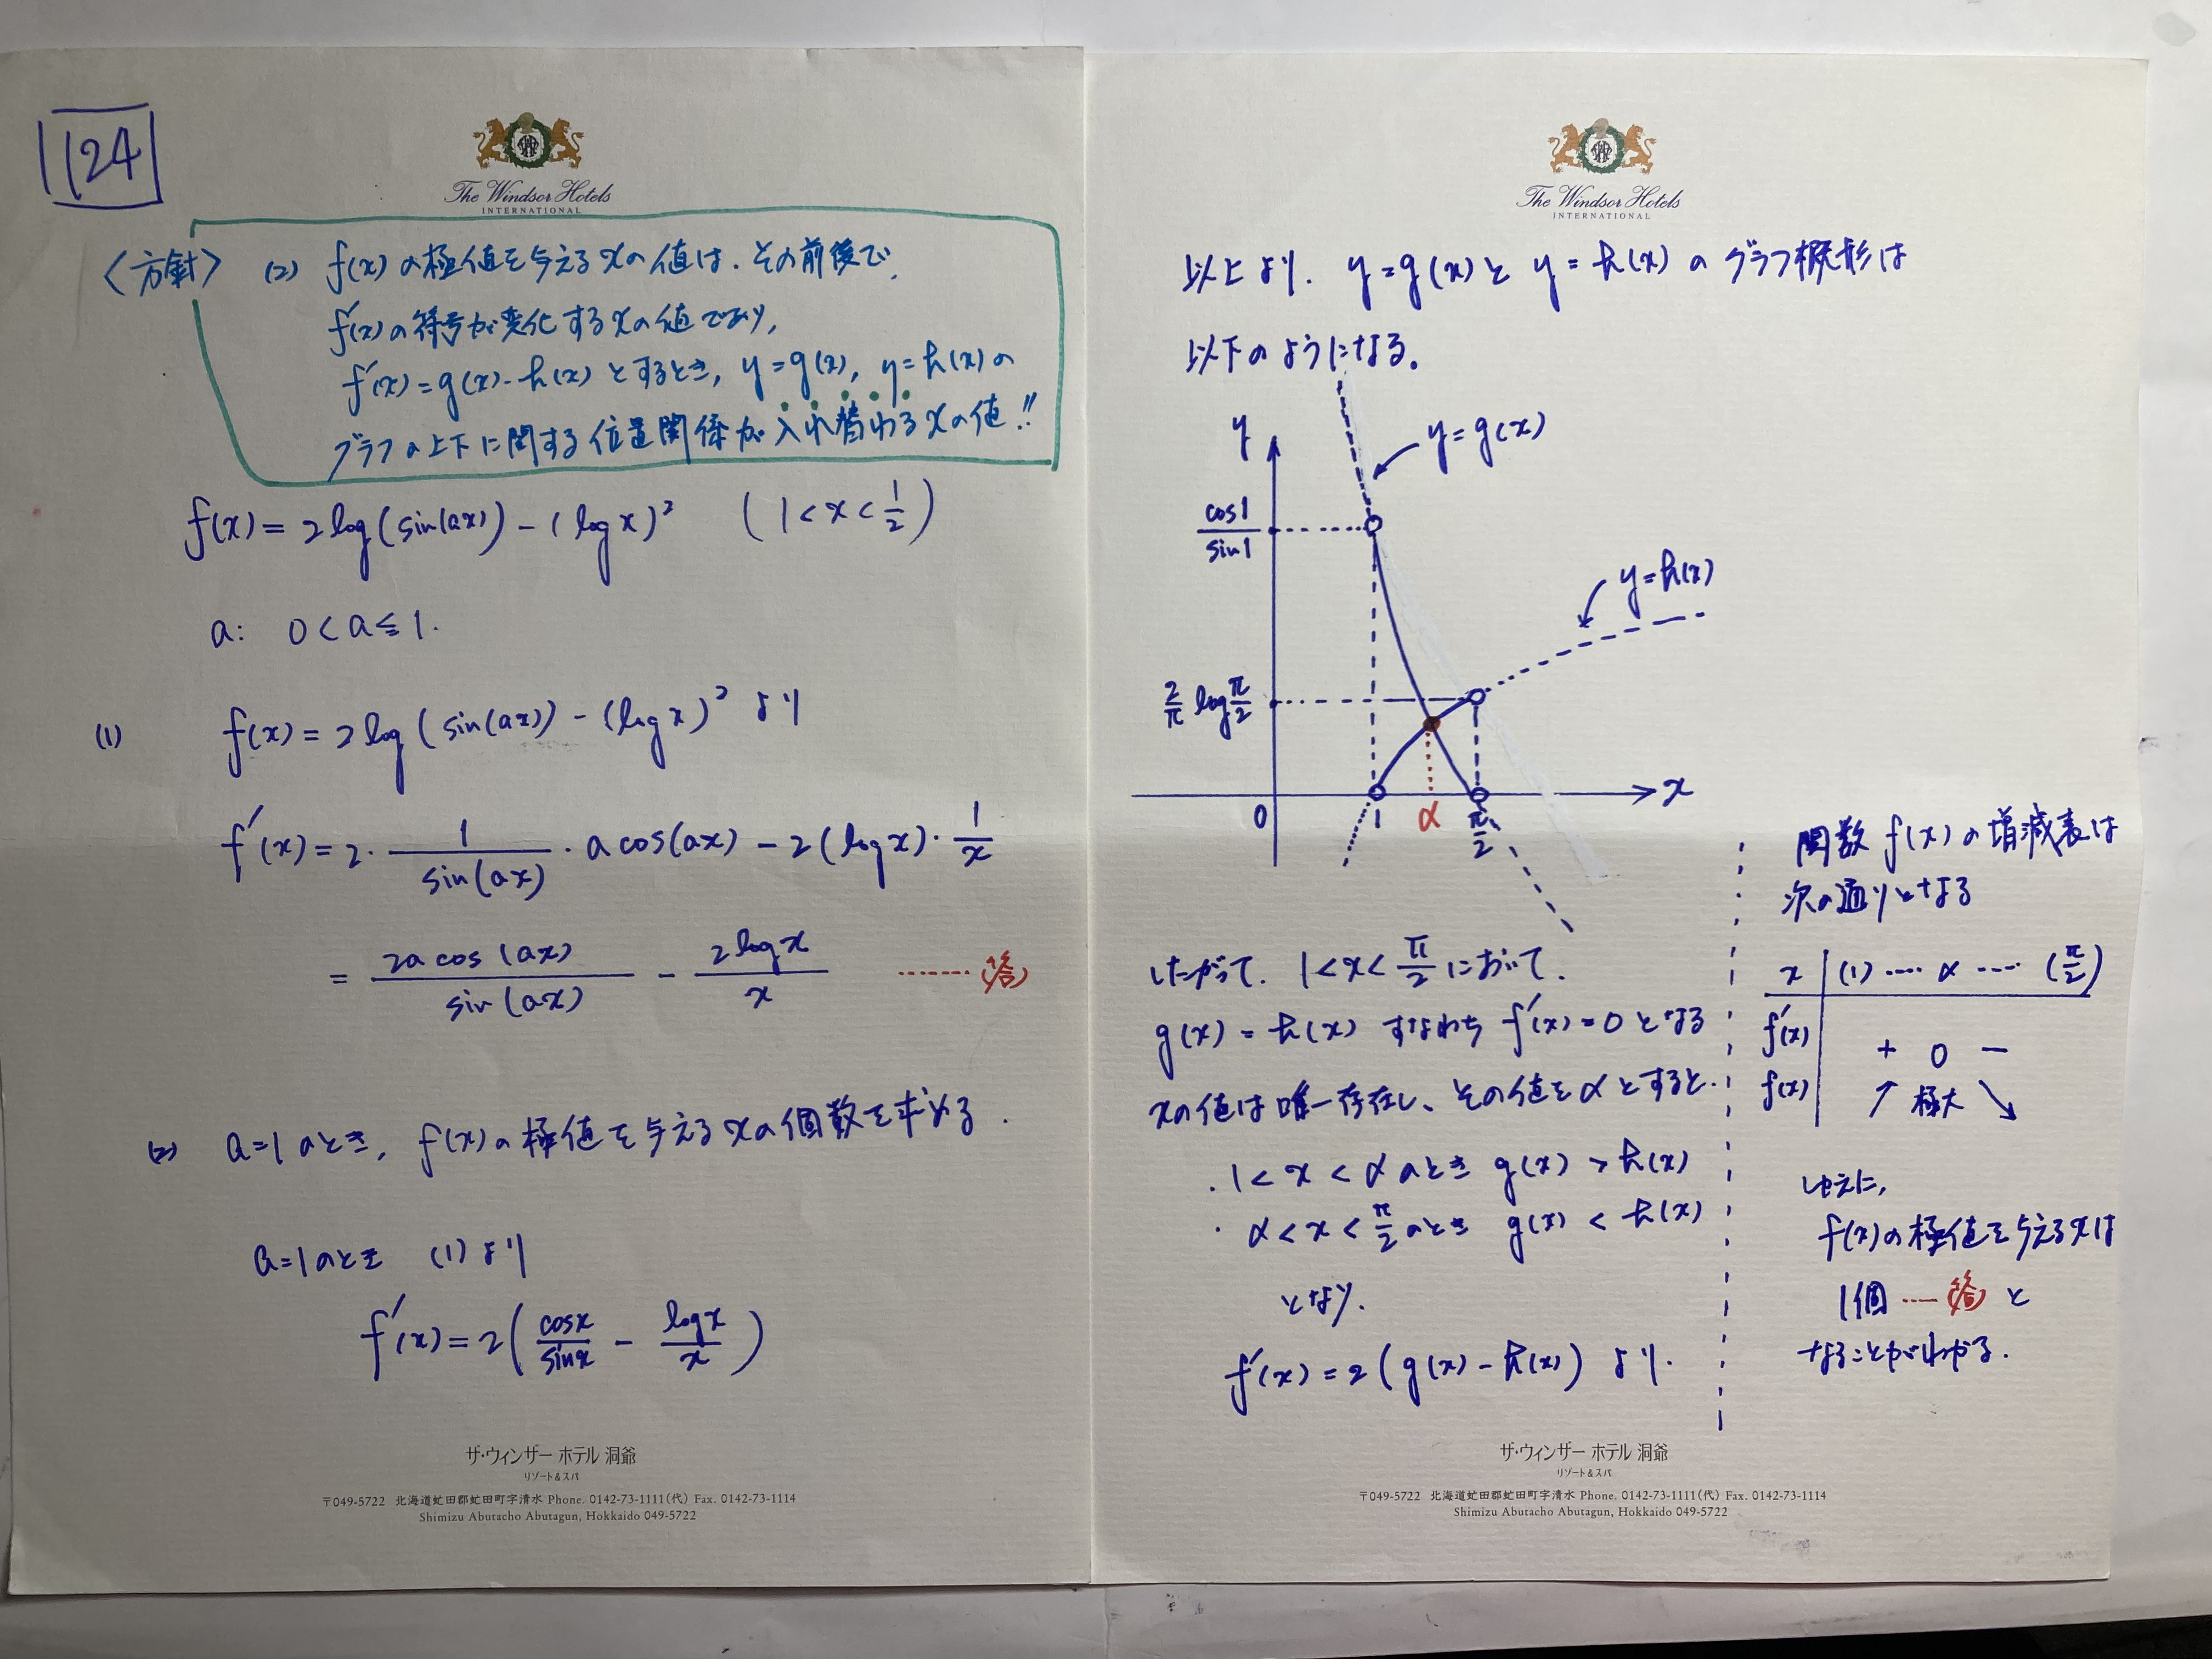 124
The Windsor Hotels
INTERNATIONAL
〈方針〉 (2) f(x)の極値を与えるxの値は、その前後で、
f'(x)の符号が変化するxの値であり、
f'(x)=g(x)-h(x) とするとき, y=g(x), y=h(x)の
グラフの上下に関する位置関係が入れ替わるxの値!!
f(x)=2log(sin(ax))-(logx)² (1<x<1/2)
a: 0<a≦1.
(1) f(x)=2log(sin(ax))-(logx)² より
f'(x)=2・1/sin(ax)・a cos(ax)-2(logx)・1/x
=2a cos(ax)/sin(ax) - 2logx/x ……(答)
(2) a=1のとき, f(x)の極値を与えるxの個数を求める.
a=1のとき (1)より
f'(x)=2(cosx/sinx - logx/x)
ザ・ウィンザー ホテル 洞爺
リゾート&スパ
〒049-5722 北海道虻田郡虻田町字清水 Phone. 0142-73-1111(代) Fax. 0142-73-1114
Shimizu Abutacho Abutagun, Hokkaido 049-5722
The Windsor Hotels
INTERNATIONAL
以上より. y=g(x)と y=h(x)のグラフ概形は
以下のようになる。
y
y=g(x)
cos1/sin1
y=h(x)
2/π log π/2
x
0
1
α
π/2
したがって. 1<x<π/2 において.
g(x)=h(x) すなわち f'(x)=0 となる
xの値は唯一存在し、その値をαとすると.
・1<x<αのとき g(x)>h(x)
・α<x<π/2のとき g(x)<h(x)
となり.
f'(x)=2(g(x)-h(x)) より.
関数 f(x)の増減表は
次の通りとなる
x (1) …. α …. (π/2)
f'(x) + 0 −
f(x) ↗ 極大 ↘
ゆえに,
f(x)の極値を与えるxは
1個 ……(答) と
なることがわかる.
ザ・ウィンザー ホテル 洞爺
リゾート&スパ
〒049-5722 北海道虻田郡虻田町字清水 Phone. 0142-73-1111(代) Fax. 0142-73-1114
Shimizu Abutacho Abutagun, Hokkaido 049-5722